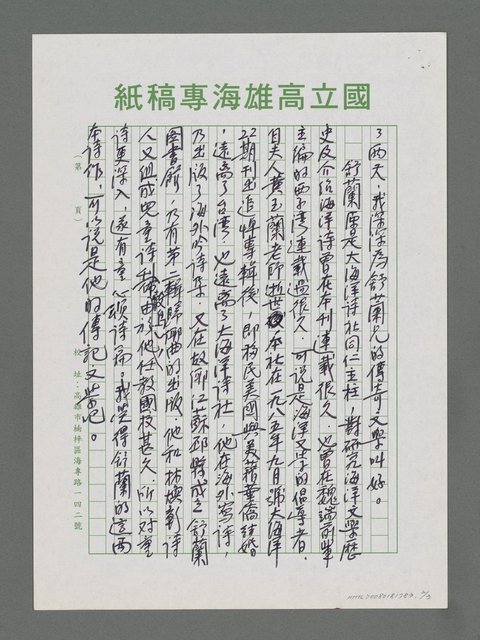 國立高雄海專稿紙
了兩天,我深深為舒蘭兄的傳奇文學叫好。
舒蘭原是大海洋詩社同仁主柱,對研究海洋文學歷
史及介紹海洋詩曾在本刊連載很久,也曾在魏端前輩
主編的西子灣連載過很久,可說是海洋文學的倡導者,
自夫人黃玉蘭老師逝世,本社在一九八五年九月號大海洋
22期刊出追悼專輯後,即移民美國與美籍華僑結婚
,遠離了台灣,也遠離了大海洋詩社,他在海外寫詩,
乃出版了海外吟詩集,又在故鄉江蘇邳縣成立舒蘭
圖書館,乃有第二輯歸鄉曲的出版,他和林煥彰詩
人又組成兒童詩社,由於他任教國校甚久,所以對童
詩更深入,還有童心讀詩篇。我覺得舒蘭的這兩
本詩作,可以說是他的傳記文學吧。
(第 頁)
校址:高雄市楠梓區海專路一四二號